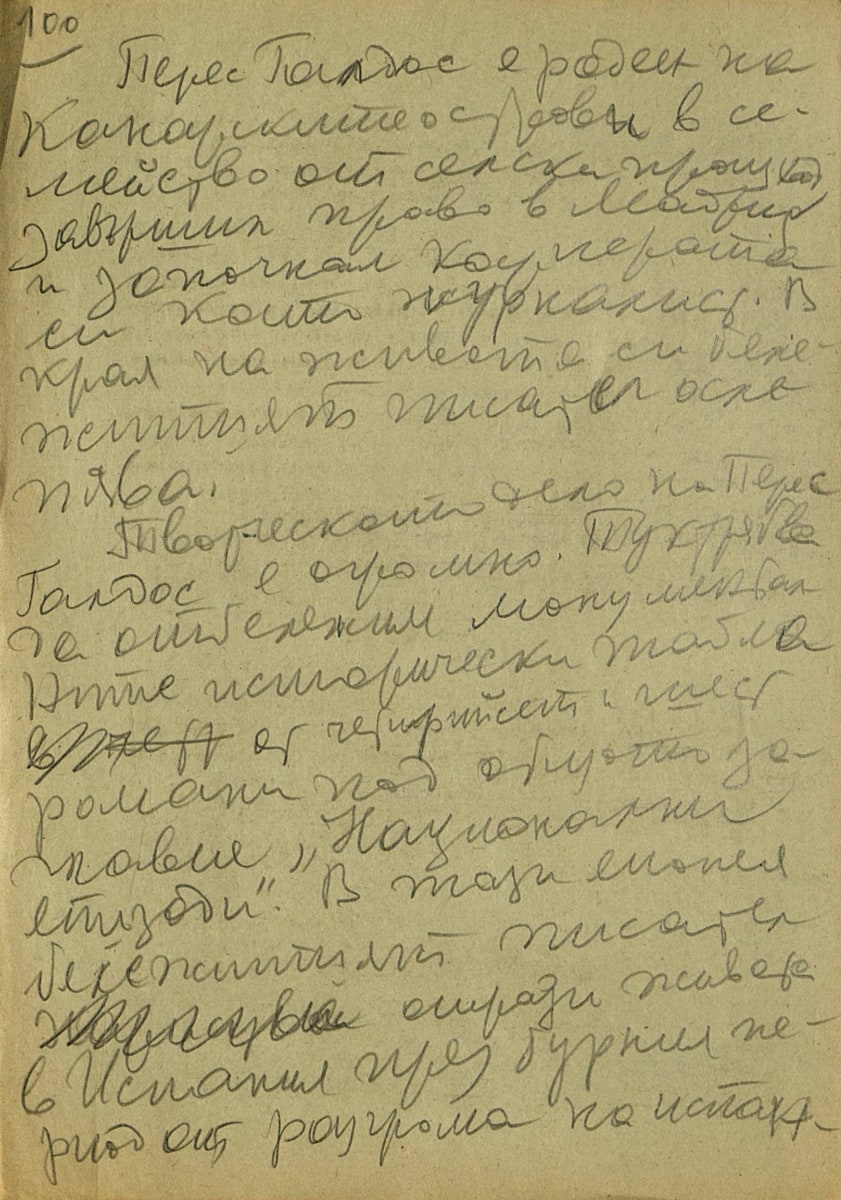 100
Перес Галдос е роден на
Канарските острови в се-
мейство от селски произход
завършил право в Мадрид
и започнал кариерата
си като журналист. В
края на живота си беле-
житият писател осле-
пява.
Творческото дело на Перес
Галдос е огромно. Тук трябва
да отбележим монументал
ните исторически табла
от четирийсет и шест
романи под общото за-
главие „Национални
епизоди". В тази епопея
бележитият писател
отрази живота
в Испания през бурния пе-
риод от разгрома на испан-